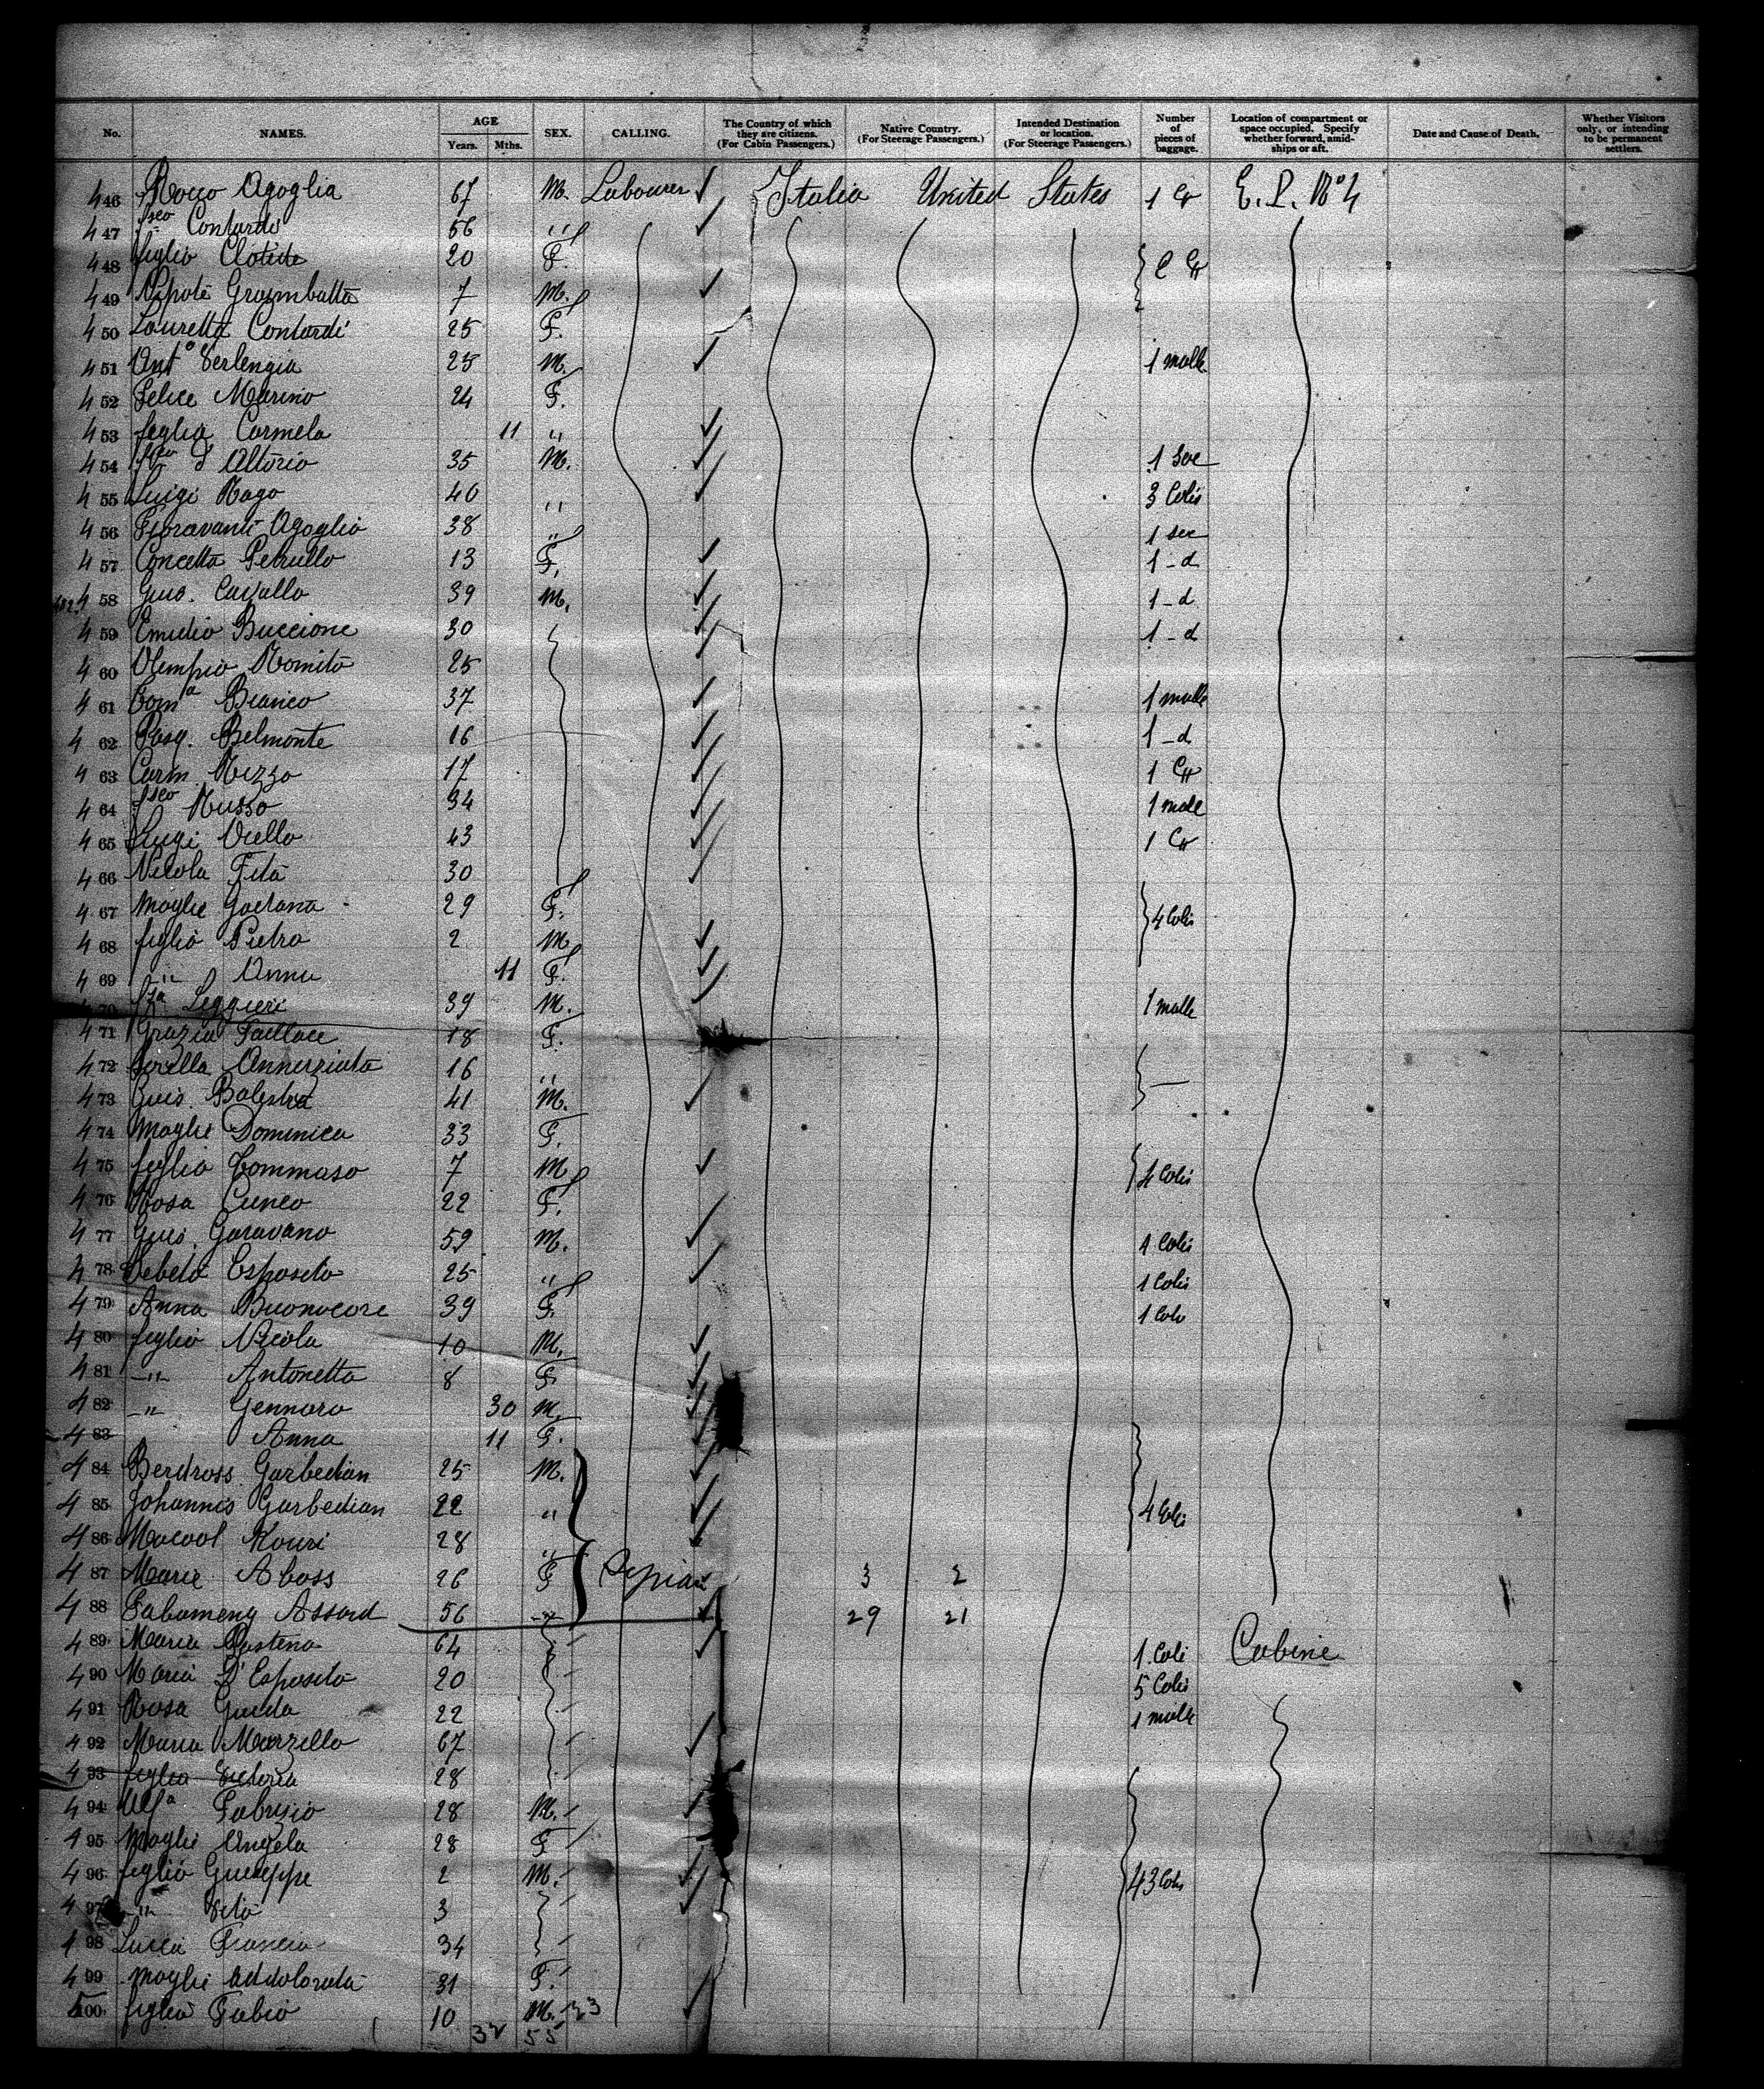 No. NAMES. AGE Years. Mths. SEX. CALLING. The Country of which they are citizens. (For Cabin Passengers.) Native Country. (For Steerage Passengers.) Intended Destination or location. (For Steerage Passengers.) Number of pieces of baggage. Location of compartment or space occupied. Specify whether forward, amidships or aft. Date and Cause of Death. Whether Visitors only, or intending to be permanent settlers.
446 Rocco Agoglia 67 M. Labourer Italia United States 1 E. P. No 4
447 Contardi 56 "
448 figlia Clotide 20 F.
449 Nipote 7 M.
450 Lauretta Contardi 25 F.
451 Anto Verlengia 25 M. 1 malle
452 Felice Marino 24 F.
453 figlia Carmela 11 "
454 D'Altorio 35 M. 1 Sac
455 Luigi Nago 40 " 3 Colis
456 Fioravanti Agoglia 38 " 1 sac
457 Concetta Petrullo 13 F. 1 - d
458 Gius. Cavallo 39 M. 1 - d
459 Emidio Buccione 30 1 - d
460 Olempio Romito 25
461 Toma Bianco 37 1 malle
462 Pasq. Belmonte 16 1 - d
463 Carm. Rizzo 17 1
464 Fsco Russo 34 1 malle
465 Luigi Viello 43 1
466 Nicola Fita 30
467 Moglie Gaetana 29 F. 4 Colis
468 figlio Pietro 2 M.
469 - " - Anna 11 F.
470 Leggieri 39 M. 1 malle
471 Grazia Faillace 18 F.
472 Sorella Annunziata 16 "
473 Guis. Balestra 41 M.
474 Moglie Dominica 33 F.
475 figlio Tommaso 7 M. 4 Colis
476 Rosa Cuneo 22 F.
477 Guis. Garavano 59 M. 1 Colis
478 Esposito 25 " 1 Colis
479 Anna Buonocore 39 F. 1 Colis
480 figlio Nicola 10 M.
481 - " - Antonetta 8 F.
482 - " Gennaro 30 M.
483 Anna 11 F.
484 Berdross Garbedian 25 M.
485 Johannis Garbedian 22 " 4 Colis
486 Macool Kouri 28 "
487 Marie Aboss 26 F 3 2
488 Assard 56 - " - 29 21
489 Maria Pastena 64 1 Coli Cabine
490 Maria D'Esposito 20 5 Colis
491 Rosa Guida 22 1 malle
492 Maria Marzello 67
493 figlia 28
494 Fabrizio 28 M.
495 Moglie Angela 28 F
496 figlio Guiseppe 2 M. 3 Colis
497 - " - Vito 3
498 Lucia 34
499 Moglie Addolorata 31 F.
500 figlio Fabio 10 M. 23
32 55